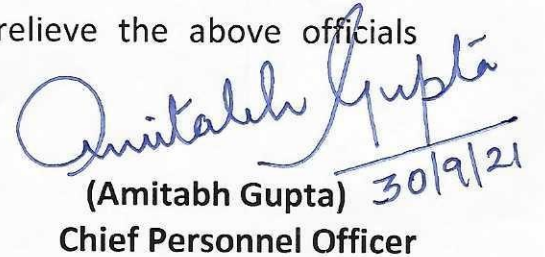 relieve the above officials
Amitabh Gupta
30/9/21
(Amitabh Gupta)
Chief Personnel Officer